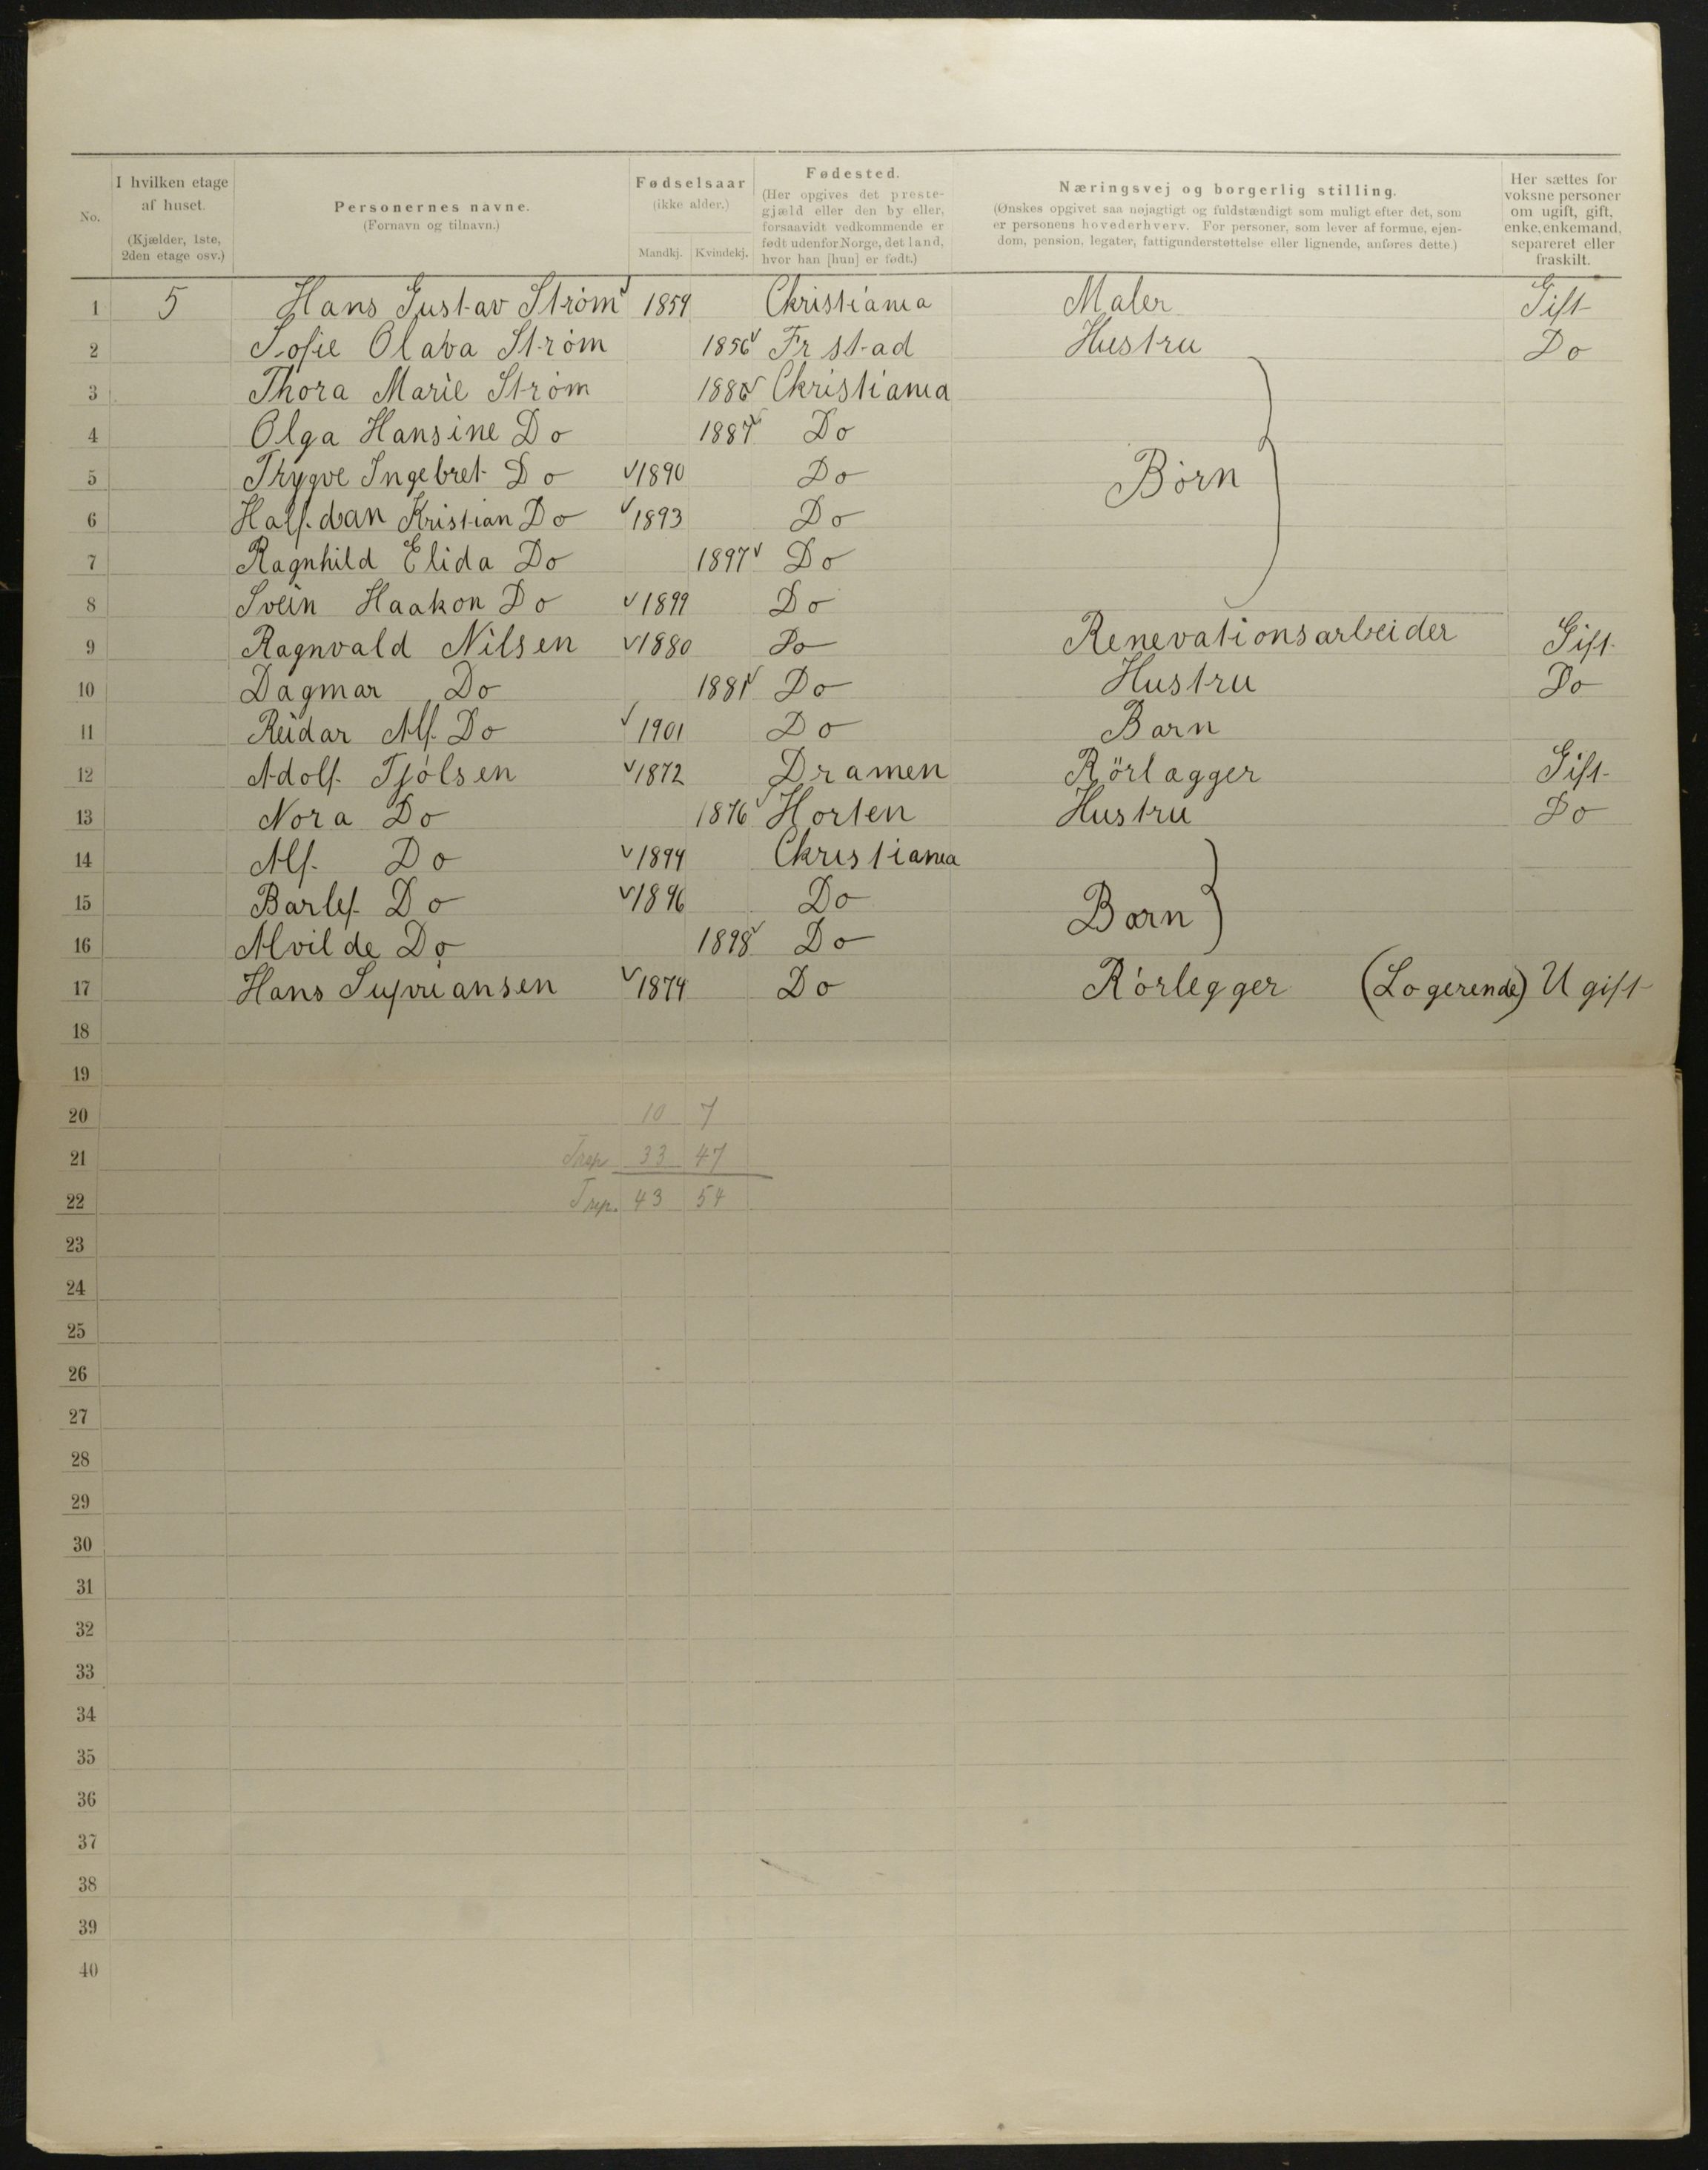 No.
I hvilken etage af huset. (Kjælder, 1ste, 2den etage osv.)
Personernes navne. (Fornavn og tilnavn.)
Fødselsaar (ikke alder.)
Mandkj. Kvindekj.
Fødested. (Her opgives det prestegjæld eller den by eller, forsaavidt vedkommende er født udenfor Norge, det land, hvor han [hun] er født.)
Næringsvej og borgerlig stilling.
(Ønskes opgivet saa nøjagtigt og fuldstændigt som muligt efter det, som er personens hovederhverv. For personer, som lever af formue, ejendom, pension, legater, fattigunderstøttelse eller lignende, anføres dette.)
Her sættes for voksne personer om ugift, gift, enke, enkemand, separeret eller fraskilt.
1 5 Hans Gustav Strøm 1859 Christiania Maler Gift
2 Sofie Olava Strøm 1856 Frstad Hustru Do
3 Thora Marie Strøm 1886 Christiania
4 Olga Hansine Do 1887 Do
5 Trygve Ingebret Do 1890 Do Børn
6 Halfdan Kristian Do 1893 Do
7 Ragnhild Elida Do 1897 Do
8 Svein Haakon Do 1899 Do
9 Ragnvald Nilsen 1880 Do Renevationsarbeider Gift
10 Dagmar Do 1881 Do Hustru Do
11 Reidar Alf Do 1901 Do Barn
12 Adolf Tjølsen 1872 Dramen Rörlagger Gift
13 Nora Do 1876 Horten Hustru Do
14 Alf Do 1894 Christiania
15 Barlef Do 1896 Do Børn
16 Alvilde Do 1898 Do
17 Hans 1874 Do Rørlegger (Logerende) Ugift
18
19
20 10 7
21 33 47
22 43 54
23
24
25
26
27
28
29
30
31
32
33
34
35
36
37
38
39
40